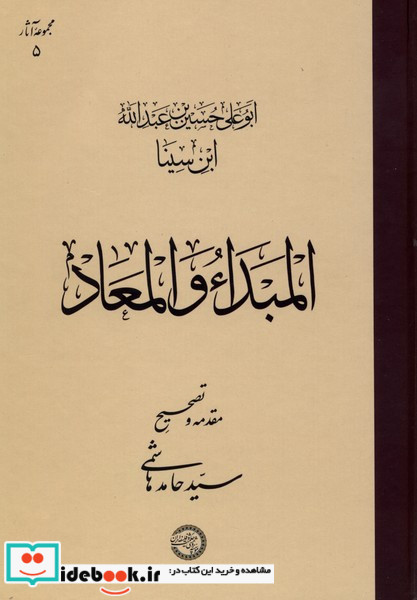 مجموعهٔ آثار
۵
ابو علی حسین بن عبد اللهُ
ابنِ سینا
المَبدَاءُ وَالمَعَاد
مقدمه و تصحیحِ
سیّد حامد هاشمی
مشاهده و خرید این کتاب در:
idebook.ir